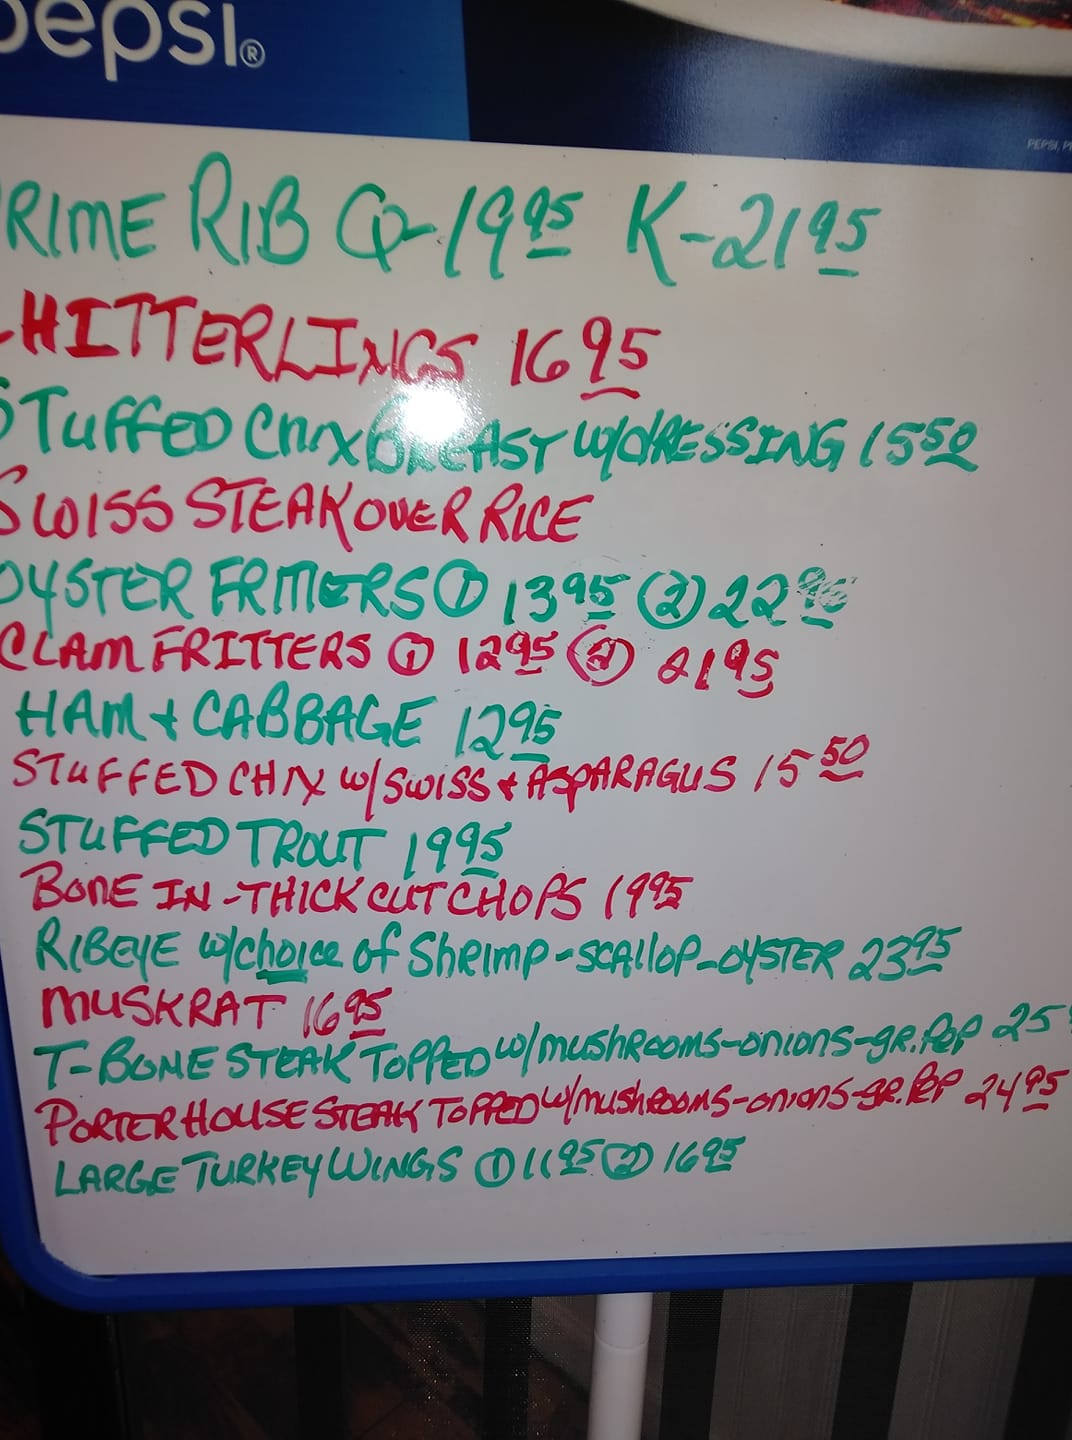 pepsi®
PEPSI, P
RIME RIB Q-19 95 K-21 95
HITTERLINGS 16 95
STUFFED CHIX BREAST W/DRESSING 15 50
SWISS STEAK OVER RICE
OYSTER FRITTERS ① 13 95 ② 22 95
CLAM FRITTERS ① 12 95 ② 21 95
HAM + CABBAGE 12 95
STUFFED CHIX W/SWISS + ASPARAGUS 15 50
STUFFED TROUT 19 95
BONE IN-THICK CUT CHOPS 19 95
RIBEYE w/choice of SHRIMP-SCALLOP-OYSTER 23 95
MUSKRAT 16 95
T-BONE STEAK TOPPED w/MUSHROOMS-ONIONS-GR.PEP 25
PORTERHOUSE STEAK TOPPED w/MUSHROOMS-ONIONS-GR.PEP 24 95
LARGE TURKEY WINGS ① 11 95 ② 16 95